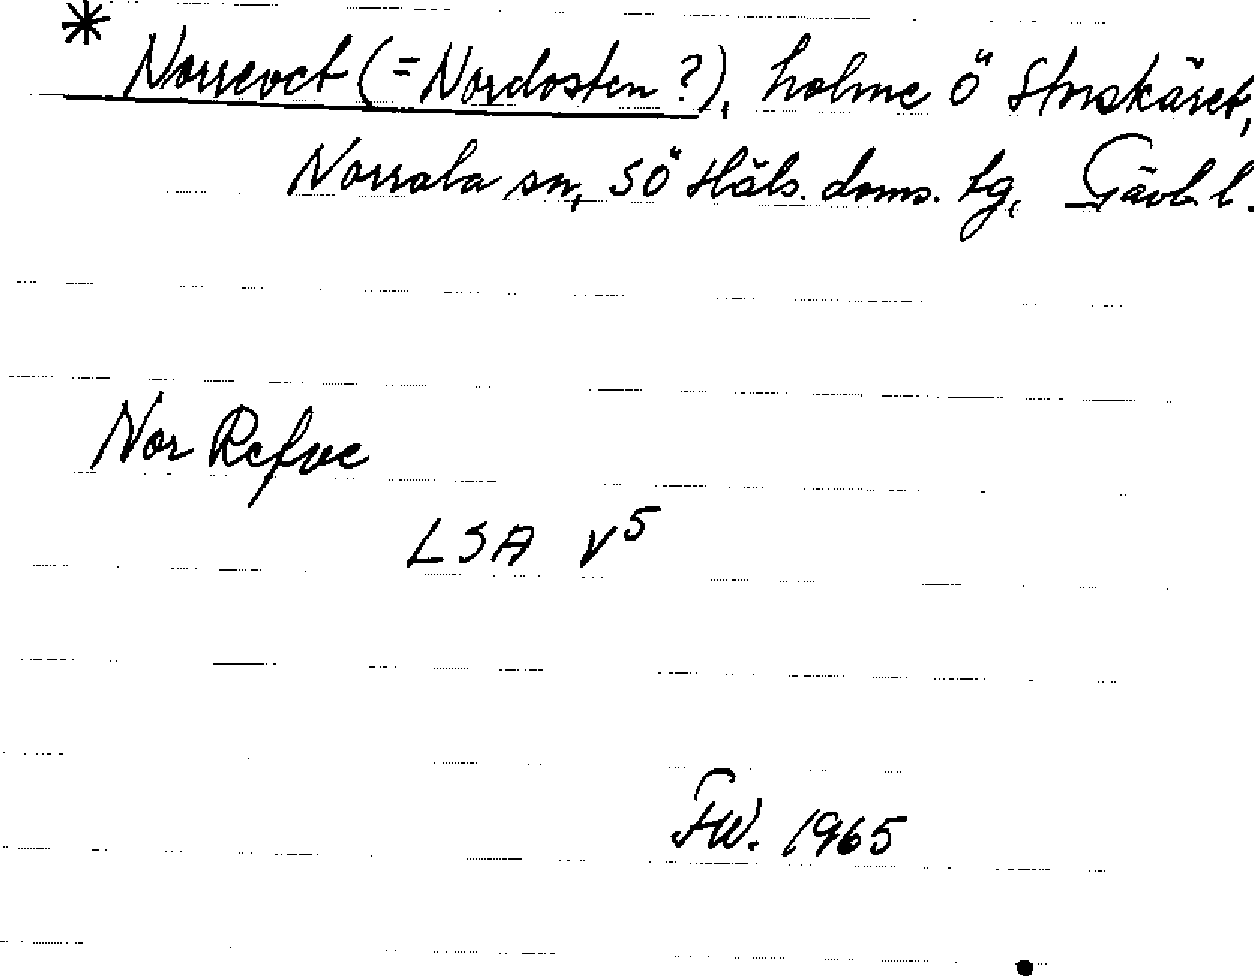 * Norrevet (= Nordosten ?), holme ö Storskäret,
Norrala sn, SÖ Häls. doms. tg, Gävl. l.
Nor Refve
LSA V5
FW. 1965